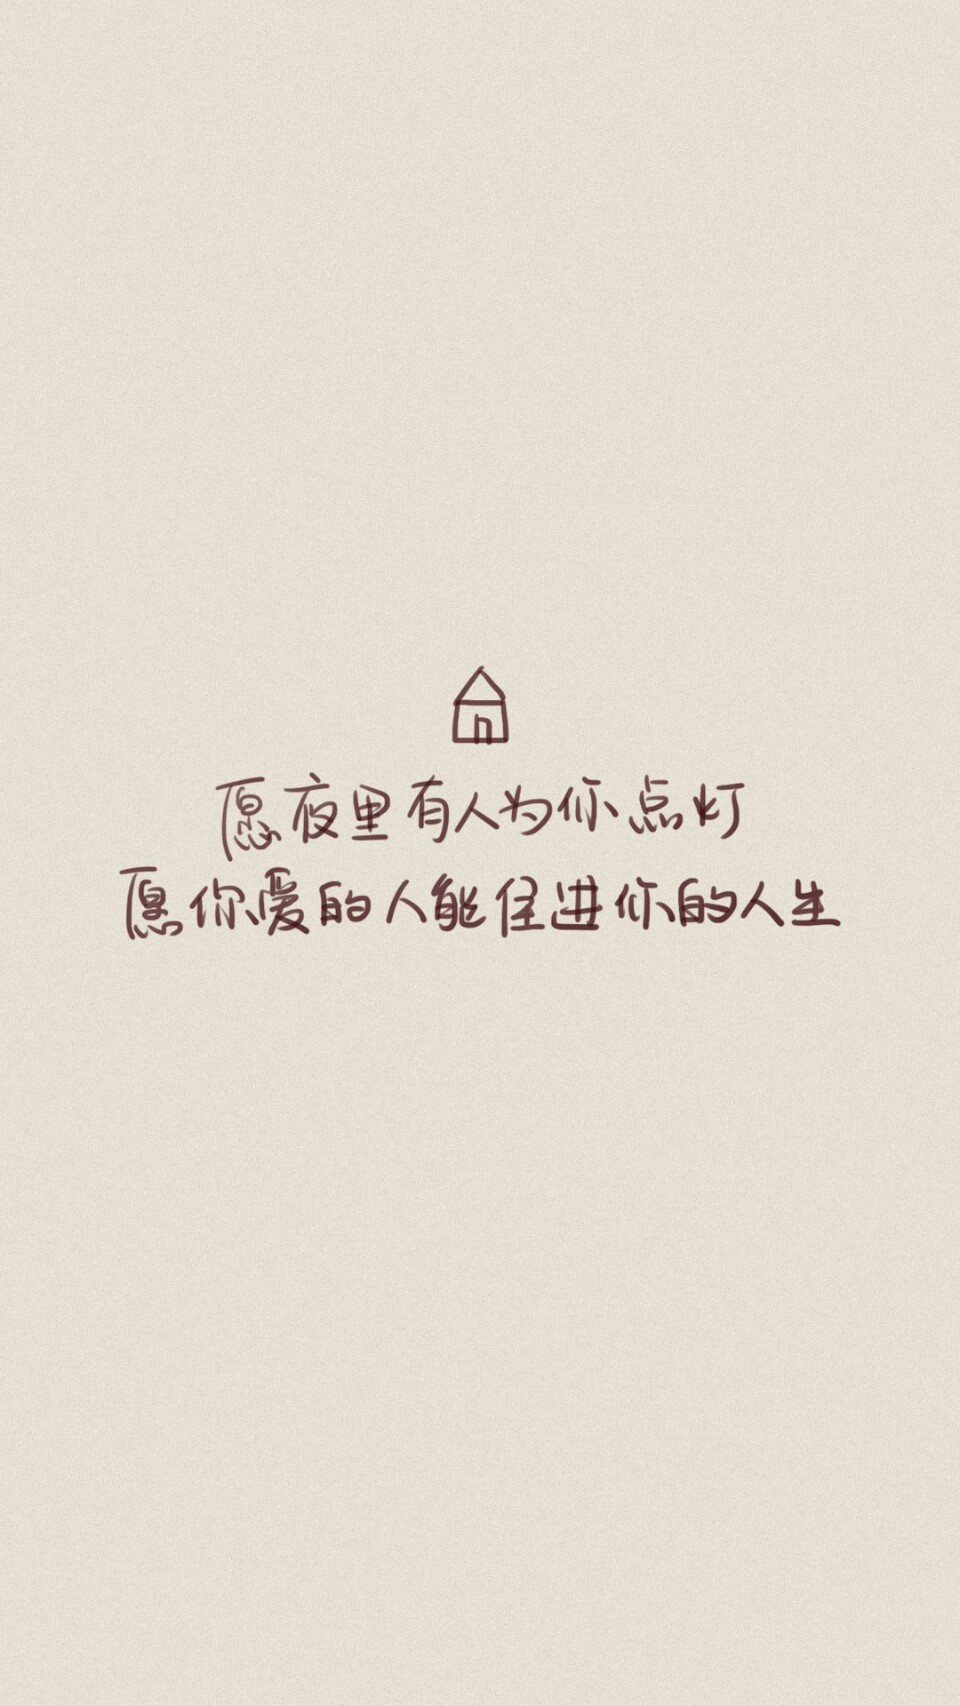 愿夜里有人为你点灯
愿你爱的人能住进你的人生